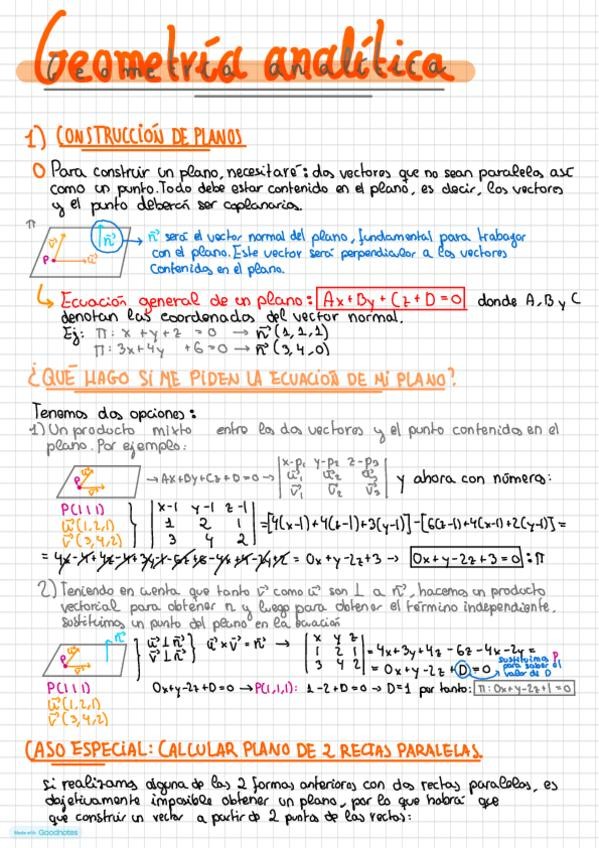 Geometría analítica
1) CONSTRUCCIÓN DE PLANOS
O Para construir un plano, necesitaré: dos vectores que no sean paralelos así
como un punto. Todo debe estar contenido en el plano, es decir, los vectores
y el punto deberán ser coplanarios.
π
v⃗ n⃗ → n⃗ será el vector normal del plano, fundamental para trabajar
P u⃗ con el plano. Este vector será perpendicular a los vectores
contenidos en el plano.
↳ Ecuación general de un plano: Ax+By+Cz+D=0 donde A, B y C
denotan las coordenadas del vector normal.
Ej: π: x +y+z =0 → n⃗ (1,1,1)
π: 3x+4y +6=0 → n⃗ (3,4,0)
¿QUÉ HAGO SI ME PIDEN LA ECUACIÓN DE MI PLANO?
Tenemos dos opciones:
1) Un producto mixto entre los dos vectores y el punto contenido en el
plano. Por ejemplo:
→ Ax+By+Cz+D=0 → | x-p₁ y-p₂ z-p₃ |
| u⃗₁ u⃗₂ u⃗₃ | y ahora con números:
| v⃗₁ v⃗₂ v⃗₃ |
P(1 1 1) | x-1 y-1 z-1 |
u⃗(1,2,1) | 1 2 1 | =[4(x-1)+4(z-1)+3(y-1)]-[6(z-1)+4(x-1)+2(y-1)]=
v⃗(3,4,2) | 3 4 2 |
= 4x-4+4z-4+3y-3-6z+6-4x+4-2y+2 = 0x+y-2z+3 → 0x+y-2z+3=0 : π
2) Teniendo en cuenta que tanto v⃗ como u⃗ son ⊥ a n⃗, hacemos un producto
vectorial para obtener n y luego para obtener el término independiente,
sustituimos un punto del plano en la ecuación
n⃗ u⃗⊥n⃗ v⃗⊥n⃗ } u⃗×v⃗=n⃗ → | x y z |
| 1 2 1 | =4x+3y+4z-6z-4x-2y=
| 3 4 2 | = 0x+y-2z+D=0 sustituimos P
para saber el
valor de D
P(1 1 1) 0x+y-2z+D=0 → P(1,1,1): 1-2+D=0 → D=1 por tanto: π: 0x+y-2z+1=0
u⃗(1,2,1)
v⃗(3,4,2)
CASO ESPECIAL: CALCULAR PLANO DE 2 RECTAS PARALELAS.
Si realizamos alguna de las 2 formas anteriores con dos rectas paralelas, es
objetivamente imposible obtener un plano, por lo que habrá que
que construir un vector a partir de 2 puntos de las rectas:
Made with Goodnotes